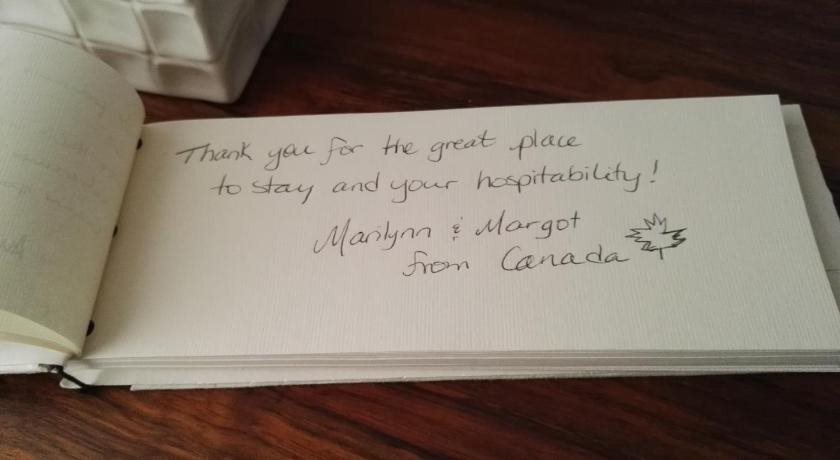 Thank you for the great place
to stay and your hospitability!
Marilynn & Margot
from Canada